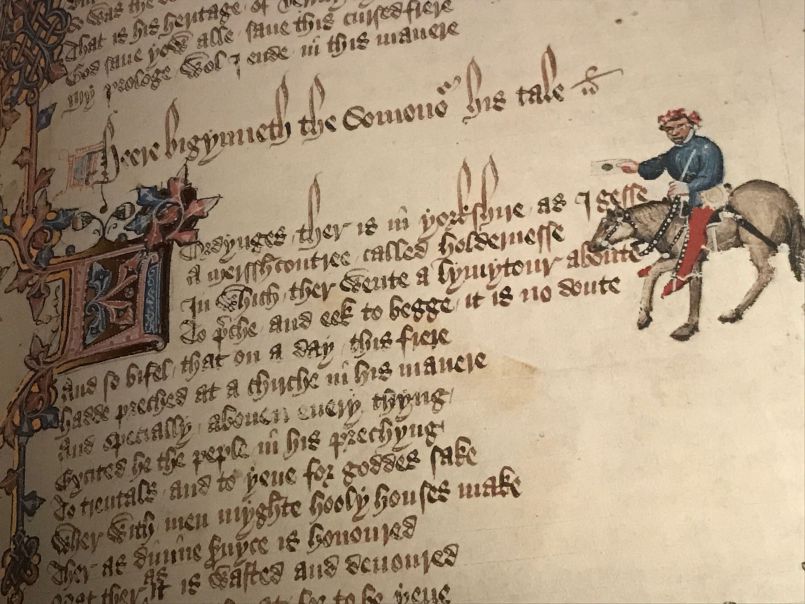 So was the
That is his heritage of
God saue yow alle saue this cursed frere
My prologe wol I ende in this manere
Heere bigynneth the Somonoʳ his tale
Lordynges ther is in yorkshire as I gesse
A mersshcontree called holdernesse
In which ther wente a lymytour aboute
To p̄che and eek to begge it is no doute
And so bifel that on a day this frere
Hadde preched at a chirche in his manere
And specially abouen euery thyng
Excited he the peple in his prechyng
To trentals and to yeue for goddes sake
Wher with men myghte hooly houses make
Ther as diuine s̄uyce is honoured
Nat ther as it is wasted and deuoured
to be yeue